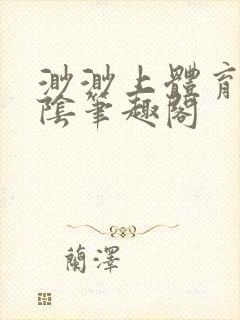 渺渺上體育
陰筆趣閣
蘭澤